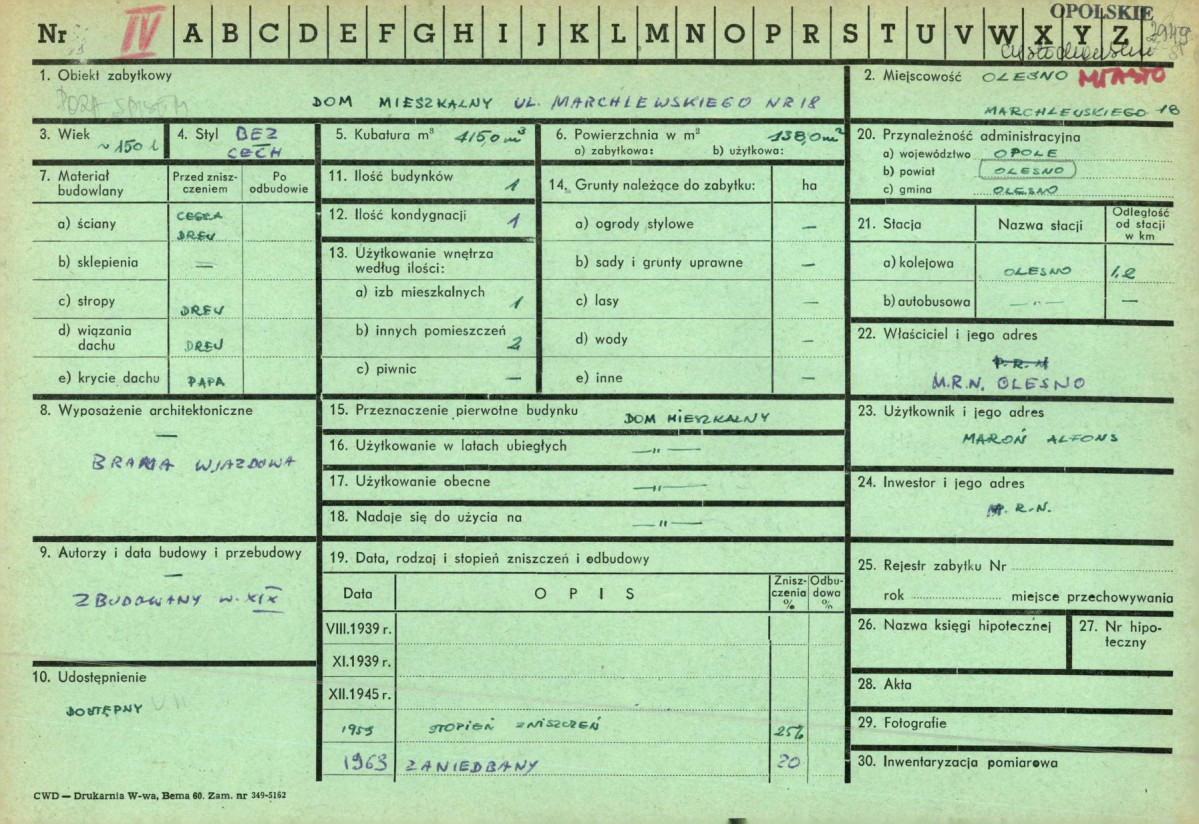 Nr IV A B C D E F G H I J K L M N O P R S T U V W X Y Z
OPOLSKIE
2949
1. Obiekt zabytkowy
DOM MIESZKALNY UL. MARCHLEWSKIEGO NR 18
2. Miejscowość OLESNO MIASTO
MARCHLEWSKIEGO 18
3. Wiek
~ 150 l
4. Styl BEZ
CECH
5. Kubatura m³ 415,0 m³
6. Powierzchnia w m² 138,0 m²
a) zabytkowa: b) użytkowa:
20. Przynależność administracyjna
a) województwo OPOLE
b) powiat OLESNO
c) gmina OLESNO
7. Materiał budowlany
Przed zniszczeniem
Po odbudowie
a) ściany CEGŁA
DREW
b) sklepienia —
c) stropy DREW
d) wiązania dachu DREW
e) krycie dachu PAPA
11. Ilość budynków 1
12. Ilość kondygnacji 1
13. Użytkowanie wnętrza
według ilości:
a) izb mieszkalnych 1
b) innych pomieszczeń 2
c) piwnic —
14. Grunty należące do zabytku: ha
a) ogrody stylowe —
b) sady i grunty uprawne —
c) lasy —
d) wody —
e) inne —
21. Stacja Nazwa stacji Odległość od stacji w km
a) kolejowa OLESNO 1,2
b) autobusowa —"— —
22. Właściciel i jego adres
P.R.N
M.R.N. OLESNO
8. Wyposażenie architektoniczne
—
BRAMA WJAZDOWA
15. Przeznaczenie pierwotne budynku DOM MIESZKALNY
16. Użytkowanie w latach ubiegłych —"—
17. Użytkowanie obecne —"—
18. Nadaje się do użycia na —"—
23. Użytkownik i jego adres
MAROŃ ALFONS
24. Inwestor i jego adres
M. R.N.
9. Autorzy i data budowy i przebudowy
—
ZBUDOWANY W. XIX
19. Data, rodzaj i stopień zniszczeń i odbudowy
Data OPIS Zniszczenia % Odbudowa %
VIII.1939 r.
XI.1939 r.
XII.1945 r.
1959 STOPIEŃ ZNISZCZEŃ 25%
1963 ZANIEDBANY 30
25. Rejestr zabytku Nr
rok miejsce przechowywania
26. Nazwa księgi hipotecznej
27. Nr hipoteczny
10. Udostępnienie
DOSTĘPNY
28. Akta
29. Fotografie
30. Inwentaryzacja pomiarowa
CWD — Drukarnia W-wa, Bema 60. Zam. nr 349-5162